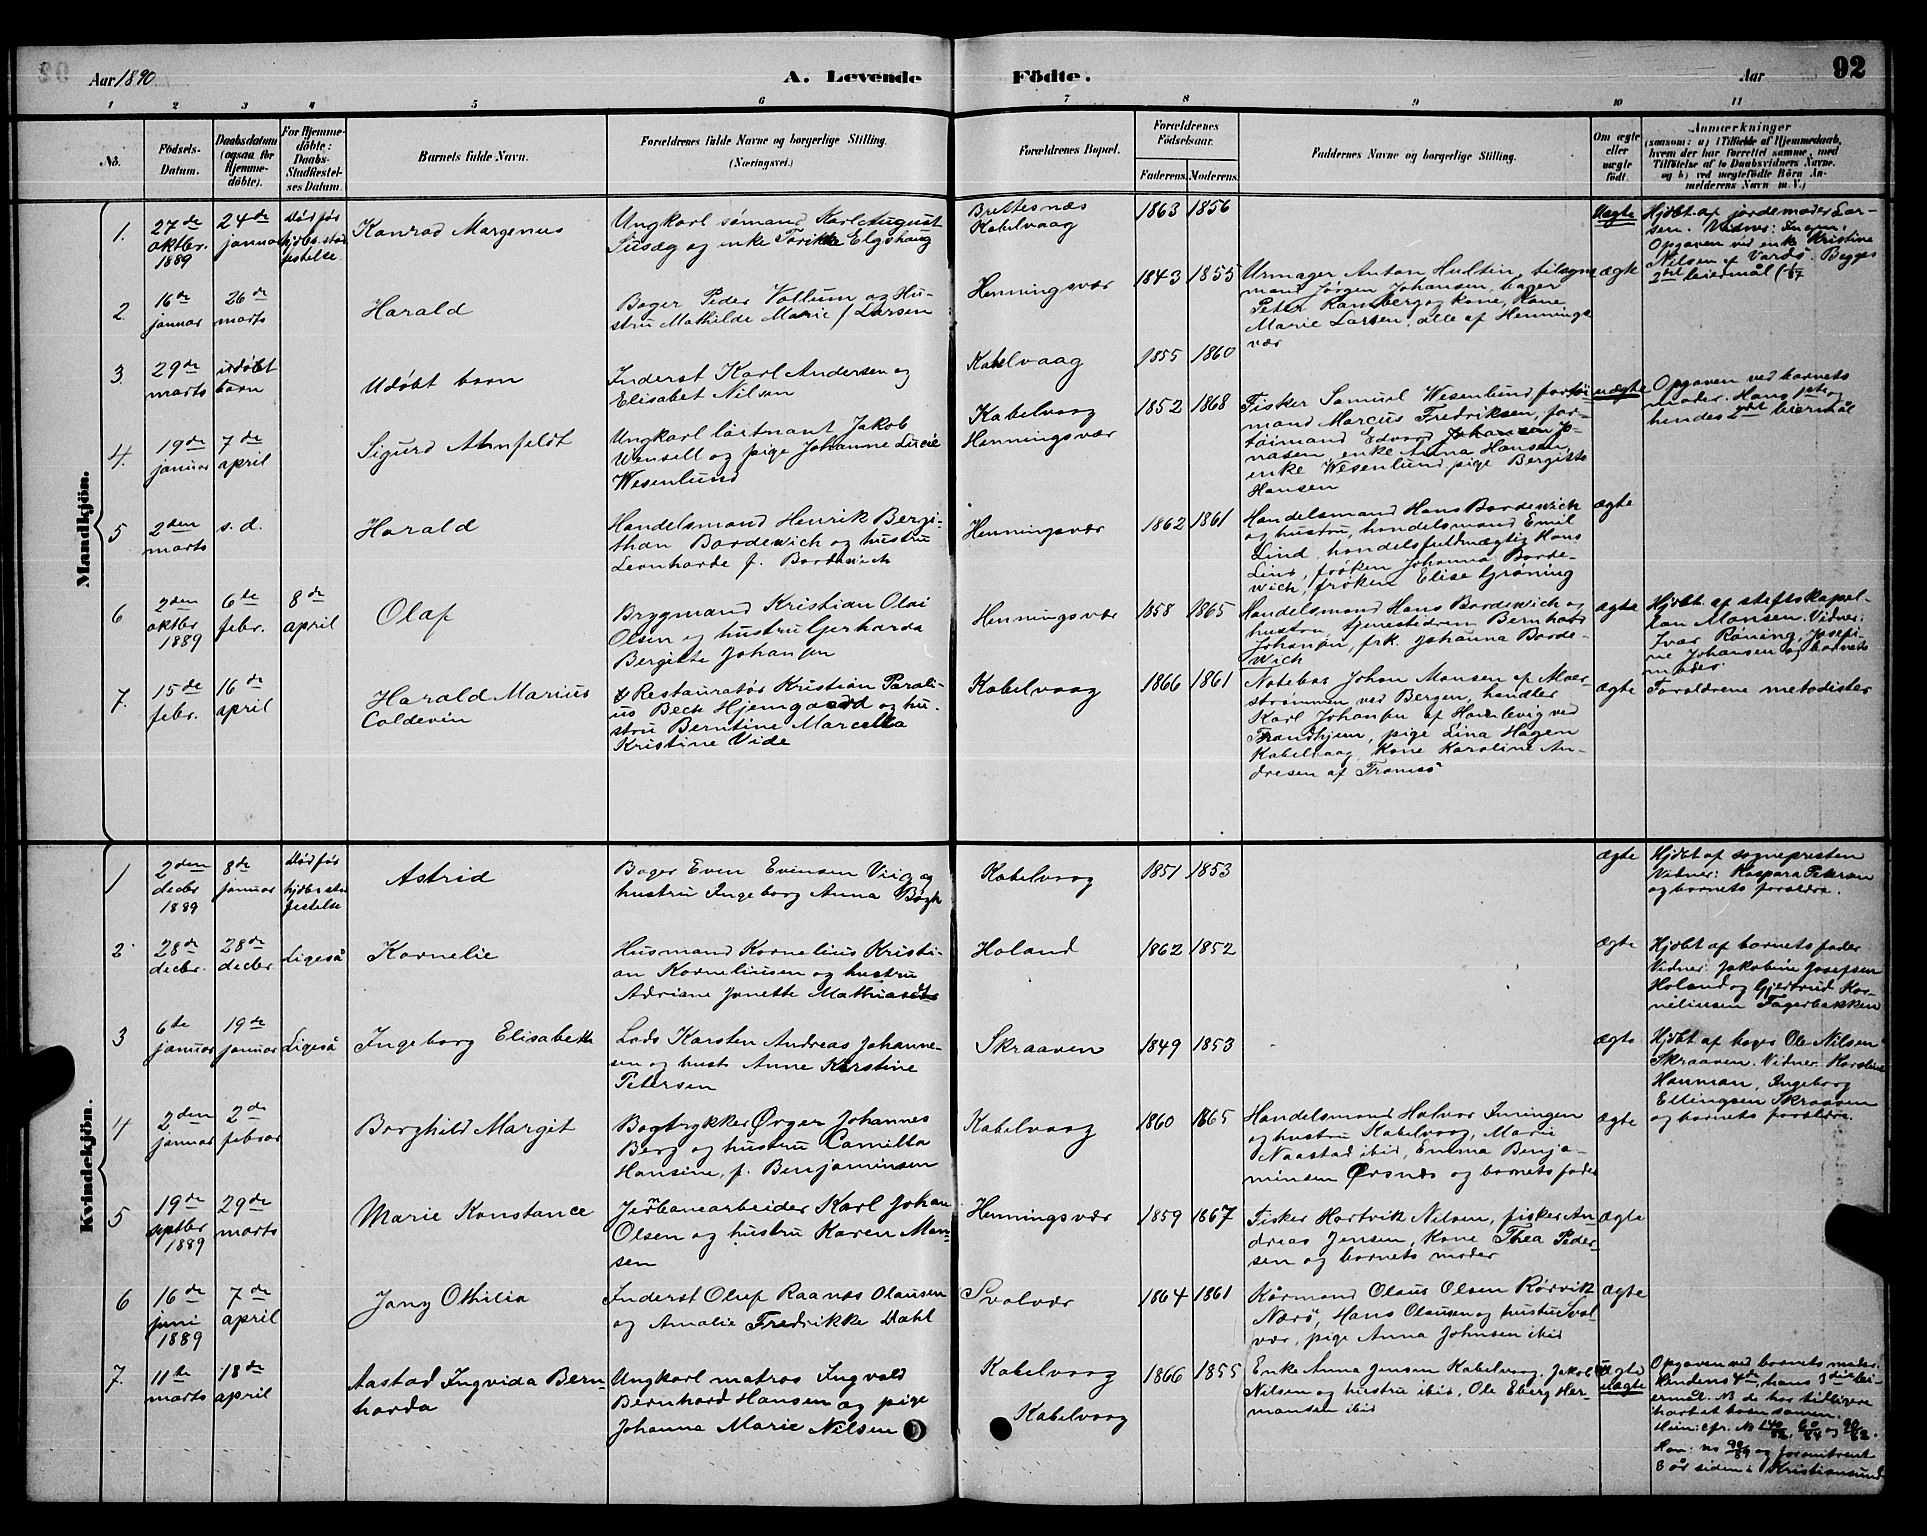 Aar 1890
A. Levende
Födte.
Aar
92
1 2 3 4 5 6 7 8 9 10 11
No.
Födsels-
Datum.
Daabsdatum
(ogsaa for
Hjemme-
döbte).
For Hjemme-
döbte:
Daabs-
Stadfæstel-
ses Datum.
Barnets fulde Navn.
Forældrenes fulde Navne og borgerlige Stilling.
(Næringsvei.)
Forældrenes Bopæl.
Forældrenes
Födselsaar.
Faderens. Moderens.
Faddernes Navne og borgerlige Stilling.
Om ægte
eller
uægte
födt.
Anmærkninger
(saasom: a) i Tilfælde af Hjemmedaab,
hvem der har forrettet samme, med
Tilföielse af to Daabsvidners Navne,
og b) ved uægtefödte Börn An-
melderens Navn m. V.)
Mandkjön.
1.
27de
oktbr.
1889
24de
januar
död før
hjdbs. stad
festelse
Konrad Margenus
Ungkarl sømand Karl August
Susæg og enke Tarikke Elgshaug
Brettesnæs
Kabelvaag
1863 1856
Uægte
Hjdbt af jordemoder Lar-
sen.
Opgaven ved enke Kristine
Nilsen af Vardö. Begges
2det leiermål
2.
16de
januar
26de
marts
Harald
Bager Peder Vollum og Hu-
stru Mathilde Marie f Larsen
Henningsvær
1843 1855
Urmager Anton Hultin, tilsyns
mand Jørgen Johansen, bager
Peter Ramberg og kone, Kone
Marie Larsen, alle af Hennings
vær
ægte
3.
29de
marts
udöbt
barn
Udöbt barn
Inderst Karl Andersen og
Elisabet Nilsen
Kabelvaag
1855 1860
4.
19de
januar
7de
april
Sigurd Ahnfeldt
Ungkarl löitnant Jakob
Wensell og pige Johanne Lucie
Wesenlund
Kabelvaag
Henningsvær
1852 1868
Fisker Samuel Wesenlund fartöi
mand Marcus Fredriksen, far-
töimand Edvard Johansen Jo-
nasen, enke Anna Hansen,
enke Wesenlund pige Bergitte
Hansen
uægte
Opgaven ved barnets
moder. Hans 1ste og
hendes 2det leiermål
5
2den
marts
s. d.
Harald
Handelsmand Henrik Bergi-
than Bordewich og hustru
Leonharde f. Bordewich
Henningsvær
1862 1861
Handelsmand Hans Bordewich
og hustru, handelsmand Emil
Lind, handelsfuldmægtig Hans
Lind, frøken Johanna Borde-
wich, frøken Elise Grøning
ægte
6
2den
oktbr
1889
6te
febr.
8de
april
Olaf
Brygmand Kristian Olai
Olsen og hustru Gerharda
Bergitte Johansen
Henningsvær
1858 1865
Handelsmand Hans Bordewich og
hustru, tjenestedreng Bernhard
Johansen, frk. Johanna Borde-
wich
ægte
Hjdbt. af stiftskapel-
lan Mansen. Vidner:
Ivar Røning, Josefi-
ne Johansen og barnets
moder.
7.
15de
febr.
16de
april
Harald Marius
Coldevin
Restauratör Kristian Parali-
us Beck Hjemgaard og hu-
stru Berntine Marcella
Kristine Vide
Kabelvaag
1866 1861
Notebas Johan Monsen af Moer-
strømmen ved Bergen, handler
Karl Johansen af Hommelvig ved
Trondhjem, pige Lina Hagen
Kabelvaag, Kone Karoline An-
dresen af Tromsö
ægte
Forældrene metodister
Kvindekjön.
1
2den
decbr
1889
8de
januar
död før
hjdbs sta
festelse
Astrid
Bager Even Evensen Viig og
hustru Ingeborg Anna Bøgh
Kabelvaag
1851 1853
ægte
Hjdbt af sognepresten
Vidner: Kaspara Peterson
og barnets forældre.
2
28de
decbr.
28de
decbr
Ligeså
Kornelie
Husmand Kornelius Kristi-
an Korneliusen og hustru
Adriane Janette Mathiasdtr
Holand
1862 1852
ægte
Hjdbt af barnets fader
Vidner: Jakobine Josefsen
Holand og Gjertrud Kor-
neliusen Fagerbakken
3
6te
januar
19de
januar
Ligeså
Ingeborg Elisabeth
Lods Karsten Andreas Johanne-
sen og hust. Anne Kirstine
Petersen
Skraaven
1849 1853
ægte
Hjdbt af bager Ole Nilsen
Skraaven. Vidner: Karoline
Hanman, Ingeborg
Ellingsen Skraaven
og barnets forældre.
4
2den
januar
2de
februar
Borghild Margit
Bogtrykker Ørger Johannes
Berg og hustru Camilla
Hansine, f. Benjaminsen
Kabelvaag
1860 1865
Handelsmand Halvor Inningen
og hustru Kabelvaag, Marie
Naastad ibid, Emma Benja-
minsen Ørsnæs og barnets fader
ægte
5
19de
septbr
1889
29de
marts
Marie Konstance
Jernbanearbeider Karl Johan
Olsen og hustru Karen Man-
sen
Henningsvær
1859 1867
Fisker Hartvik Nilsen, fisker An-
dreas Jensen, Kone Thea Peder-
sen og barnets moder
ægte
6
16de
juni
1889
7de
april
Jany Othilia
Inderst Oluf Raanæs Olausen
og Amalie Fredrikke Dahl
Svolvær
1864 1861
Kårmand Olaus Olsen Rørvik
Nærö, Hans Olausen og hustru Svol
vær, pige Anna Johnsen ibid
ægte
7.
11te
marts
18de
april
Aastad Ingvida Bern-
harda
Ungkarl matros Ingvald
Bernhard Hansen og pige
Johanna Marie Nilsen
Kabelvaag
Kabelvaag
1866 1855
Enke Anna Jensen Kabelvaag, Jakob
Nilsen og hustru ibid, Ole Eberg Her-
mansen ibid
uægte
Opgaven ved barnets moder.
Hendens 4de, hans 3die lei-
ermål. NB de har tidligere
havt et barn sammen.
3 år siden i Kristiansund